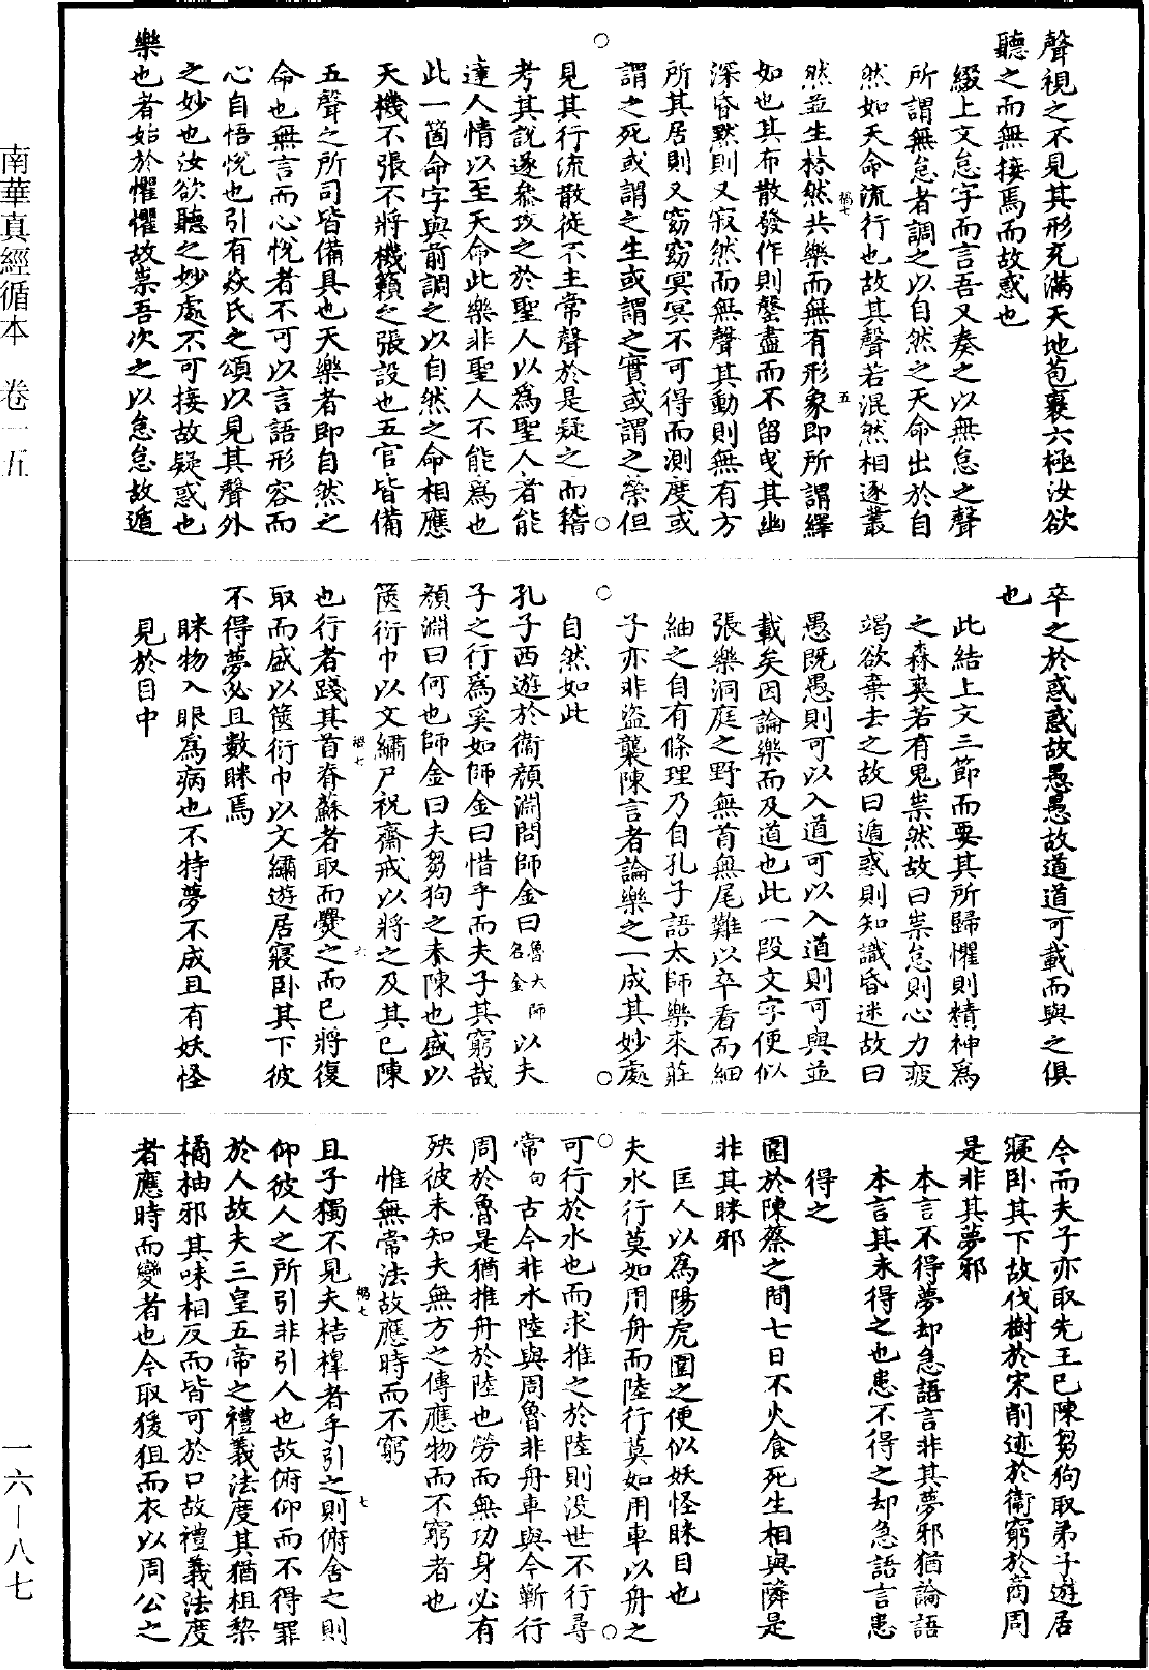 聲視之不見其形充滿天地苞裹六極汝欲
聽之而無接焉而故惑也
綴上文怠字而言吾又奏之以無怠之聲
所謂無怠者調之以自然之天命出於自
然如天命流行也故其聲若混然相逐叢
然並生林然共樂而無有形象即所謂繹
如也其布散發作則罄盡而不留曳其幽
深昏默則又寂然而無聲其動則無有方
所其居則又窈窈冥冥不可得而測度或
謂之死或謂之生或謂之實或謂之榮但
見其行流散徙不主常聲於是疑之而稽
考其說遂叅攷之於聖人以爲聖人者能
達人情以至天命此樂非聖人不能爲也
此一箇命字與前調之以自然之命相應
天機不張不將機籟之張設也五官皆備
五聲之所司皆備具也天樂者即自然之
命也無言而心悅者不可以言語形容而
心自悟悅也引有焱氏之頌以見其聲外
之妙也汝欲聽之妙處不可接故疑惑也
樂也者始於懼懼故祟吾次之以怠怠故遁
卒之於惑惑故愚愚故道道可載而與之俱
也
此結上文三節而要其所歸懼則精神爲
之森爽若有鬼祟然故曰祟怠則心力疲
竭欲棄去之故曰遁惑則知識昏迷故曰
愚既愚則可以入道可以入道則可與並
載矣因論樂而及道也此一段文字便似
張樂洞庭之野無首無尾難以卒看而細
紬之自有條理乃自孔子語太師樂來莊
子亦非盜襲陳言者論樂之一成其妙處
自然如此
孔子西遊於衞顏淵問師金曰魯大師名金以夫
子之行爲奚如師金曰惜乎而夫子其窮哉
顏淵曰何也師金曰夫芻狗之未陳也盛以
篋衍巾以文繡尸祝齋戒以將之及其已陳
也行者踐其首脊蘇者取而爨之而已將復
取而盛以篋衍巾以文繡遊居寢臥其下彼
不得夢必且數眯焉
眯物入眼爲病也不特夢不成且有妖怪
見於目中
今而夫子亦取先王已陳芻狗取弟子遊居
寢臥其下故伐樹於宋削迹於衞窮於商周
是非其夢邪
本言不得夢却急語言非其夢邪猶論語
本言其未得之也患不得之却急語言患
得之
圍於陳蔡之間七日不火食死生相與隣是
非其眯邪
匡人以爲陽虎圍之便似妖怪眯目也
夫水行莫如用舟而陸行莫如用車以舟之
可行於水也而求推之於陸則沒世不行尋
常句古今非水陸與周魯非舟車與今蘄行
周於魯是猶推舟於陸也勞而無功身必有
殃彼未知夫無方之傳應物而不窮者也
惟無常法故應時而不窮
且子獨不見夫桔槔者乎引之則俯舍之則
仰彼人之所引非引人也故俯仰而不得罪
於人故夫三皇五帝之禮義法度其猶柤棃
橘柚邪其味相反而皆可於口故禮義法度
者應時而變者也今取猨狙而衣以周公之
南華真經循本 卷一五
一六—八七